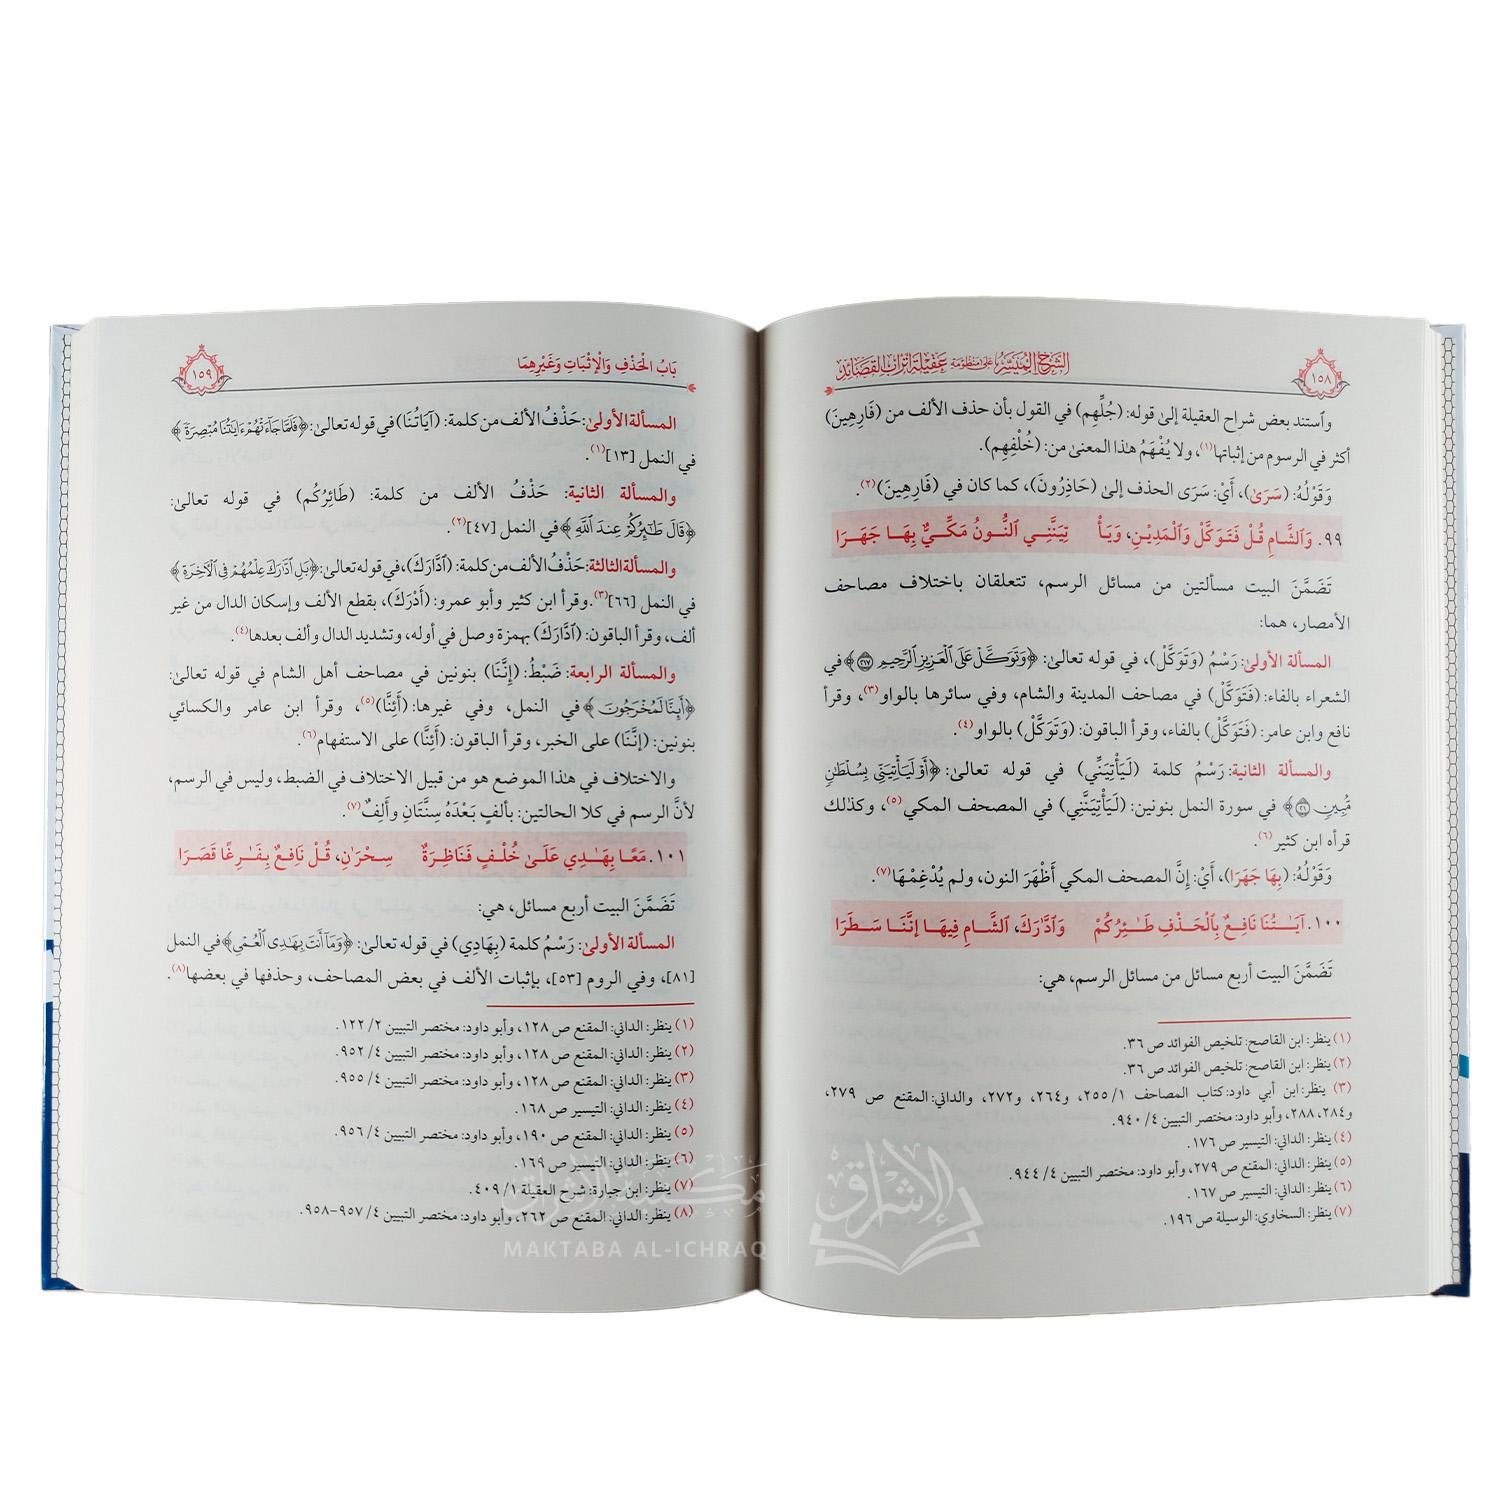 ١٥٨
الشرح الميسر على منظومة عقيلة أتراب القصائد
وٱستند بعض شراح العقيلة إلىٰ قوله: (جُلِّهِم) في القول بأن حذف الألف من (فَارِهِينَ)
أكثر في الرسوم من إثباتها(١)، ولا يُفْهَمُ هذا المعنىٰ من: (خُلْفِهِم).
وَقَوْلُهُ: (سَرَىٰ)، أَيْ: سَرَى الحذف إلىٰ (حَاذِرُونَ)، كما كان في (فَارِهِينَ)(٢).
٩٩. وَٱلشَّامِ قُلْ فَتَوَكَّلْ وَٱلْمَدِيْنِ، وَيَأْ تِيَنَّنِي ٱلنُّونُ مَكِّيٌّ بِهَا جَهَرَا
تَضَمَّنَ البيت مسألتين من مسائل الرسم، تتعلقان باختلاف مصاحف
الأمصار، هما:
المسألة الأولىٰ: رَسْمُ (وَتَوَكَّلْ)، في قوله تعالىٰ: ﴿وَتَوَكَّلْ عَلَى ٱلْعَزِيزِ ٱلرَّحِيمِ ٢١٧﴾ في
الشعراء بالفاء: (فَتَوَكَّلْ) في مصاحف المدينة والشام، وفي سائرها بالواو(٣)، وقرأ
نافع وابن عامر: (فَتَوَكَّلْ) بالفاء، وقرأ الباقون: (وَتَوَكَّلْ) بالواو(٤).
والمسألة الثانية: رَسْمُ كلمة (لَيَأْتِيَنِّي) في قوله تعالىٰ: ﴿أَوْ لَيَأْتِيَنِّي بِسُلْطَانٍ
مُّبِينٍ ٢١﴾ في سورة النمل بنونين: (لَيَأْتِيَنَّنِي) في المصحف المكي(٥)، وكذلك
قرأه ابن كثير(٦).
وَقَوْلُهُ: (بِهَا جَهَرَا)، أَيْ: إِنَّ المصحف المكي أَظْهَرَ النون، ولم يُدْغِمْهَا(٧).
١٠٠. آيَـٰتُنَا نَافِعٌ بِٱلْحَذْفِ طَـٰئِرُكُمْ وَٱدَّٰرَكَ، ٱلشَّامِ فِيهَا إِنَّنَا سَطَرَا
تَضَمَّنَ البيت أربع مسائل من مسائل الرسم، هي:
(١) ينظر: ابن القاصح: تلخيص الفوائد ص ٣٦.
(٢) ينظر: ابن القاصح: تلخيص الفوائد ص ٣٦.
(٣) ينظر: ابن أبي داود: كتاب المصاحف ١/ ٢٥٥، و٢٦٤، و٢٧٢، والداني: المقنع ص ٢٧٩،
و٢٨٤، ٢٨٨، وأبو داود: مختصر التبيين ٤/ ٩٤٠.
(٤) ينظر: الداني: التيسير ص ١٧٦.
(٥) ينظر: الداني: المقنع ص ٢٧٩، وأبو داود: مختصر التبيين ٤/ ٩٤٤.
(٦) ينظر: الداني: التيسير ص ١٦٧.
(٧) ينظر: السخاوي: الوسيلة ص ١٩٦.
بَابُ الْحَذْفِ وَالْإِثْبَاتِ وَغَيْرِهِمَا
١٥٩
المسألة الأولىٰ: حَذْفُ الألف من كلمة: (آيَاتُنَا) في قوله تعالىٰ: ﴿فَلَمَّا جَاءَتْهُمْ ءَايَـٰتُنَا مُبْصِرَةً﴾
في النمل [١٣](١).
والمسألة الثانية: حَذْفُ الألف من كلمة: (طَائِرُكُم) في قوله تعالىٰ:
﴿قَالَ طَـٰٓئِرُكُمْ عِندَ ٱللَّهِ﴾ في النمل [٤٧](٢).
والمسألة الثالثة: حَذْفُ الألف من كلمة: (ٱدَّارَكَ)، في قوله تعالىٰ: ﴿بَلِ ٱدَّارَكَ عِلْمُهُمْ فِي ٱلْآخِرَةِ﴾
في النمل [٦٦](٣). وقرأ ابن كثير وأبو عمرو: (أَدْرَكَ)، بقطع الألف وإسكان الدال من غير
ألف، وقرأ الباقون: (ٱدَّارَكَ) بهمزة وصل في أوله، وتشديد الدال وألف بعدها(٤).
والمسألة الرابعة: ضَبْطُ: (إِنَّنَا) بنونين في مصاحف أهل الشام في قوله تعالىٰ:
﴿أَئِنَّا لَمُخْرَجُونَ﴾ في النمل، وفي غيرها: (أَئِنَّا)(٥)، وقرأ ابن عامر والكسائي
بنونين: (إِنَّنَا) على الخبر، وقرأ الباقون: (أَئِنَّا) على الاستفهام(٦).
والاختلاف في هذا الموضع هو من قبيل الاختلاف في الضبط، وليس في الرسم،
لأنَّ الرسم في كلا الحالتين: بألفٍ بَعْدَهُ سِنَّتَانِ وَأَلِفٌ(٧).
١٠١. مَعًا بِهَـٰدِي عَلَىٰ خُلْفٍ فَنَاظِرَةٌ سِحْرَٰنِ، قُلْ نَافِعٌ بِفَـٰرِغًا قَصَرَا
تَضَمَّنَ البيت أربع مسائل، هي:
المسألة الأولىٰ: رَسْمُ كلمة (بِهَادِي) في قوله تعالىٰ: ﴿وَمَا أَنتَ بِهَادِي ٱلْعُمْيِ﴾ في النمل
[٨١]، وفي الروم [٥٣]، بإثبات الألف في بعض المصاحف، وحذفها في بعضها(٨).
(١) ينظر: الداني: المقنع ص ١٢٨، وأبو داود: مختصر التبيين ٢/ ١٢٢.
(٢) ينظر: الداني: المقنع ص ١٢٨، وأبو داود: مختصر التبيين ٤/ ٩٥٢.
(٣) ينظر: الداني: المقنع ص ١٢٨، وأبو داود: مختصر التبيين ٤/ ٩٥٥.
(٤) ينظر: الداني: التيسير ص ١٦٨.
(٥) ينظر: الداني: المقنع ص ١٩٠، وأبو داود: مختصر التبيين ٤/ ٩٥٦.
(٦) ينظر: الداني: التيسير ص ١٦٩.
(٧) ينظر: ابن جبارة: شرح العقيلة ١/ ٤٠٩.
(٨) ينظر: الداني: المقنع ص ٢٦٢، وأبو داود: مختصر التبيين ٤/ ٩٥٧-٩٥٨.
مكتبة الإشراق
الإشراق
MAKTABA AL-ICHRAQ